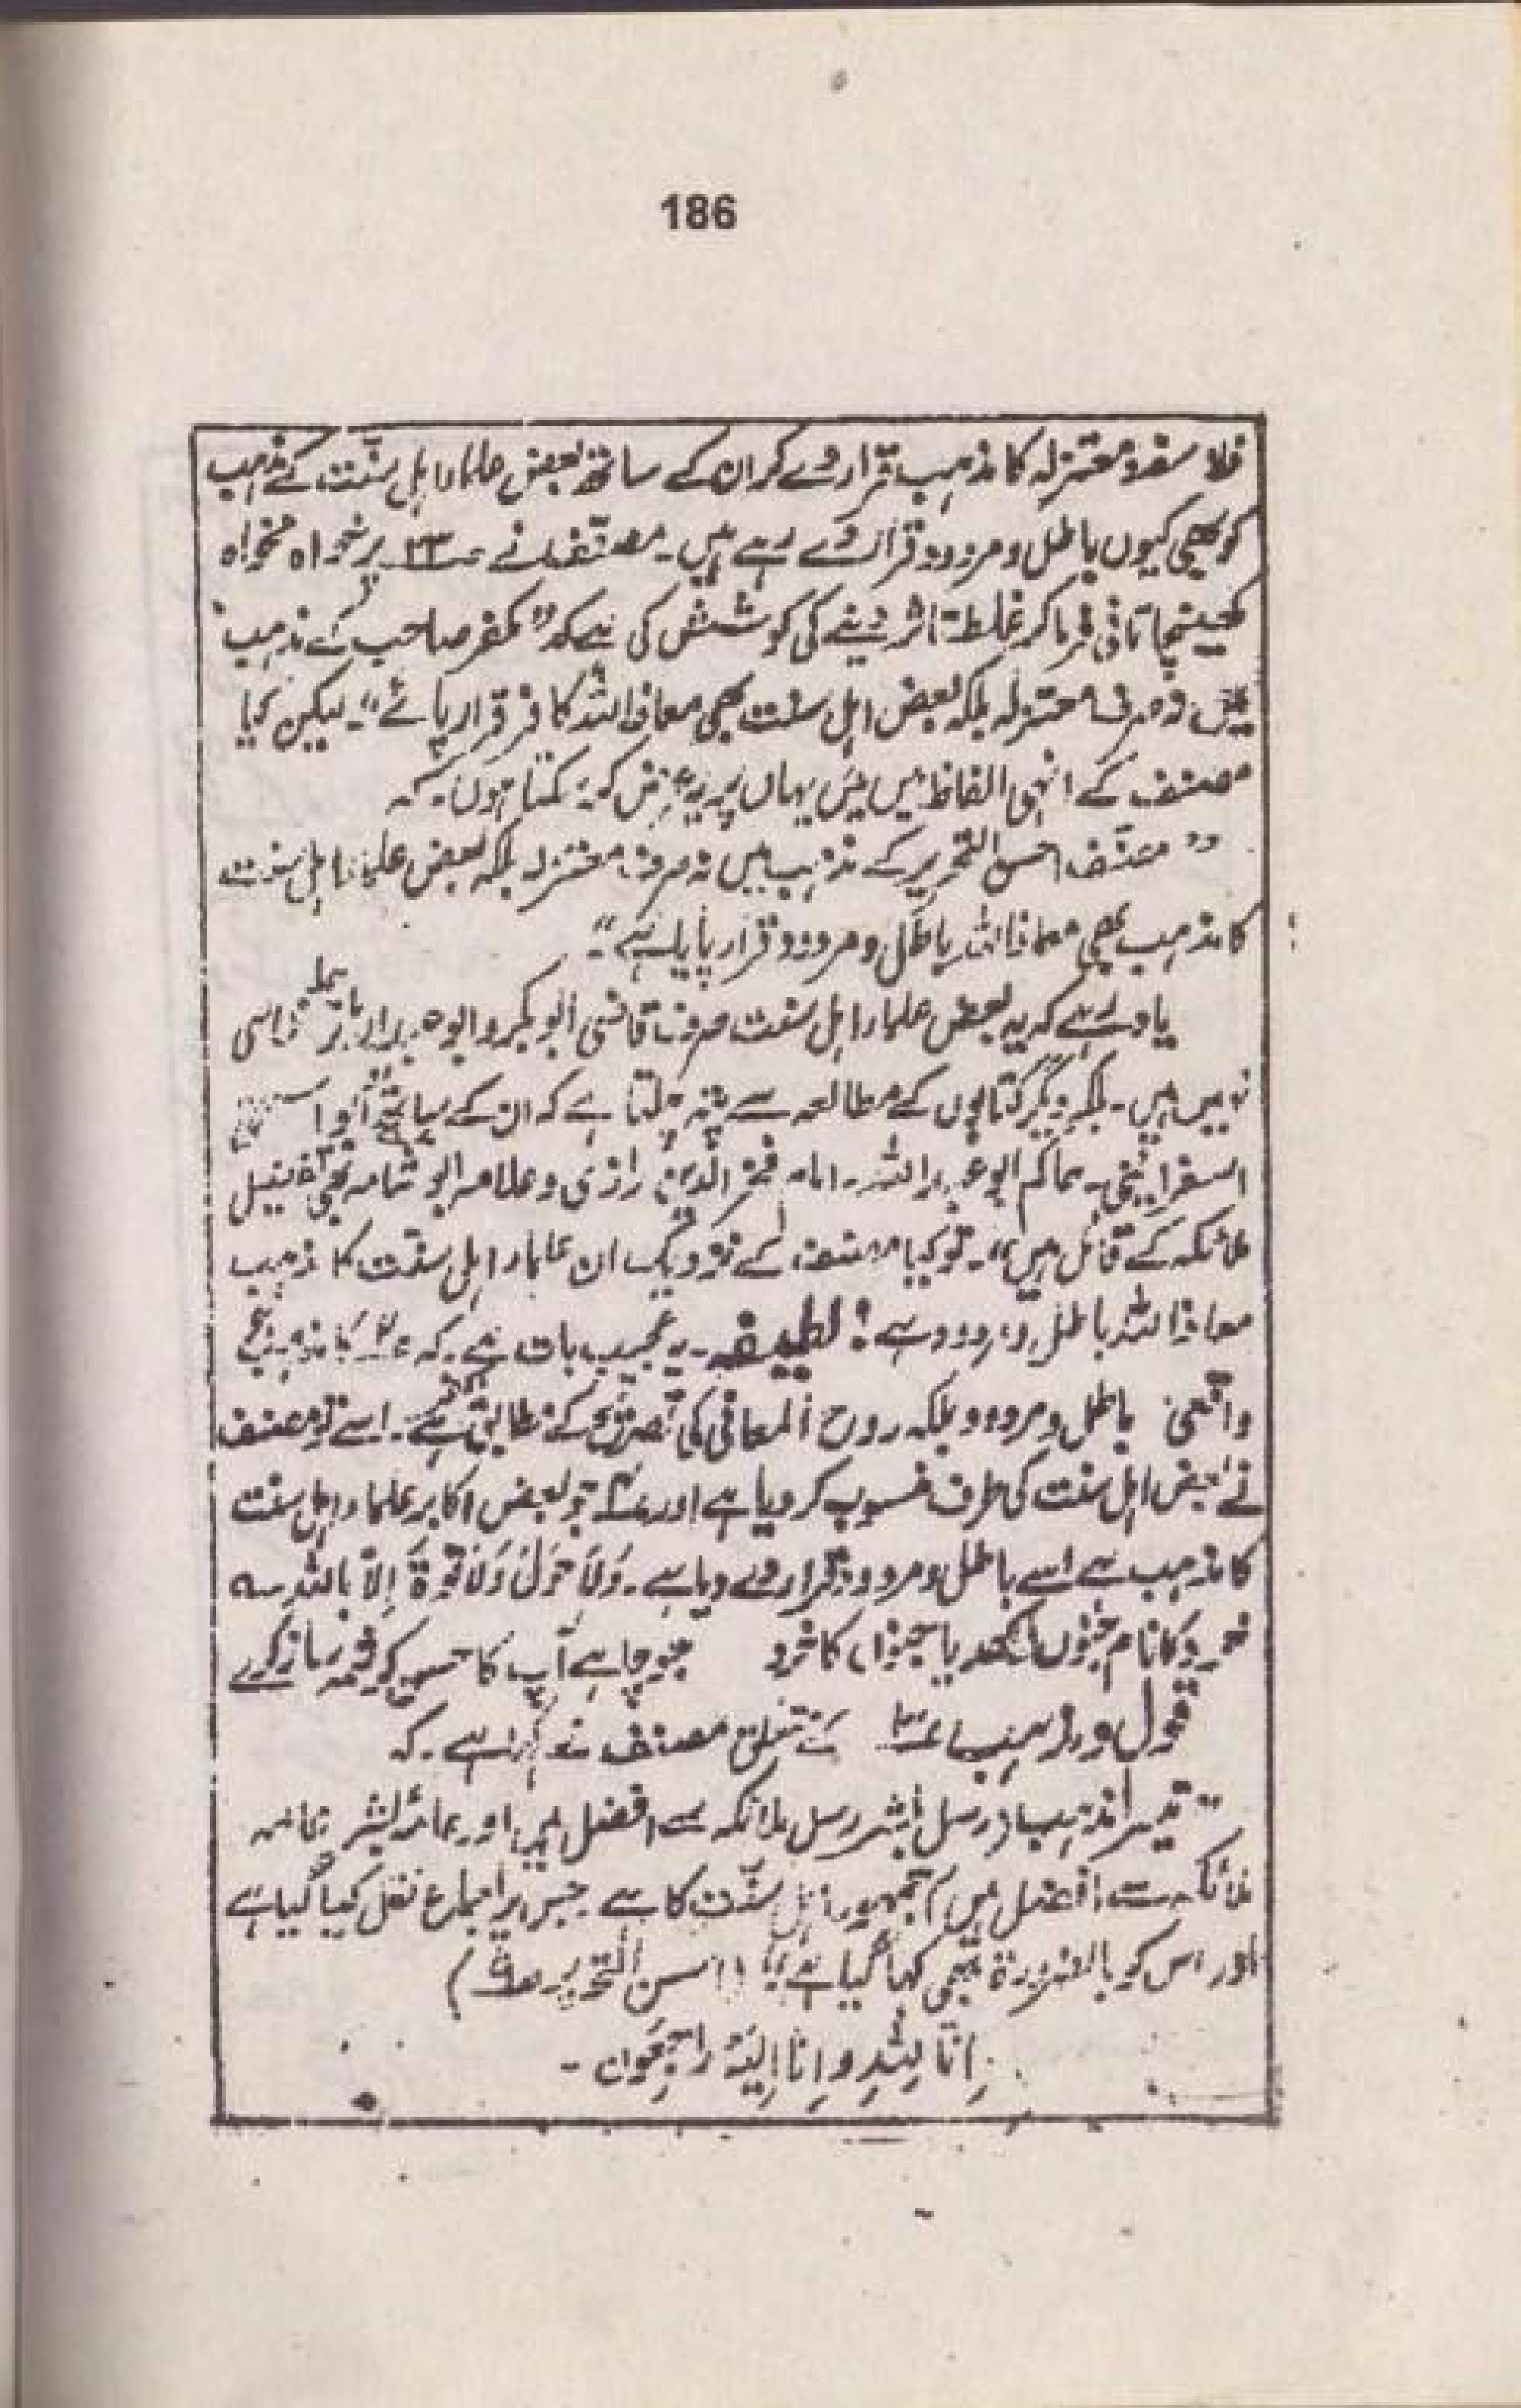 186
فلاسفہ و معتزلہ کا مذہب قرار دے کر ان کے ساتھ بعض علماء اہل سنّت کے مذہب
کو بھی کیوں باطل و مردود قرار دے رہے ہیں۔ مصنّف نے ص۳۳ پر خواہ مخواہ
کھینچا تانی فرما کر غلط تاثر دینے کی کوشش کی ہے کہ ”مکفر صاحب کے مذہب
میں نہ صرف معتزلہ بلکہ بعض اہل سنت بھی معاذ اللہ کافر قرار پائے“۔ لیکن کیا
مصنف کے انہی الفاظ میں میں یہاں پر یہ عرض کر سکتا ہوں۔ کہ
”مصنّف احسن التحریر کے مذہب میں نہ صرف معتزلہ بلکہ بعض علماء اہل سنت
کا مذہب بھی معاذ اللہ باطل و مردود قرار پایا ہے“۔
یاد رہے کہ یہ بعض علماء اہل سنت صرف قاضی ابوبکر و ابو عبداللہ
نہیں ہیں۔ بلکہ دیگر کتابوں کے مطالعہ سے پتہ چلتا ہے کہ ان کے ساتھ
اسفرائینی۔ حاکم ابو عبد اللہ۔ امام فخر الدین رازی و علامہ ابو شامہ بھی تفضیل
ملائکہ کے قائل ہیں“۔ تو کیا مصنف کے نزدیک ان علماء اہل سنّت کا مذہب
معاذ اللہ باطل و مردود ہے؟ لطیفہ۔ یہ عجیب بات ہے۔ کہ ع۲ کا مذہب جو
واقعی باطل و مردود بلکہ روح المعانی کی تصریح کے مطابق ہے۔ اسے تو مصنف
نے بعض اہل سنت کی طرف منسوب کر دیا ہے اور جو بعض اکابر علماء اہل سنت
کا مذہب ہے اسے باطل و مردود قرار دے دیا ہے۔ وَلَا حَوْلَ وَلَا قُوَّةَ اِلَّا بِاللہ سہ
خرد کا نام جنوں رکھ دیا جنوں کا خرد جو چاہے آپ کا حسن کرشمہ ساز کرے
قول و مذہب ع۳ کے متعلق مصنف نے کہا ہے۔ کہ
”تیسرا مذہب (رسل بشر رسل ملائکہ سے افضل ہیں اور عامۂ بشر عامہ
ملائکہ سے افضل ہیں) جمہور اہل سنّت کا ہے جس پر اجماع نقل کیا گیا ہے
اور اس کو بالضرورۃ بھی کہا گیا ہے“ (احسن التحریر ص۹)
اِنَّا لِلّٰہِ وَاِنَّا اِلَیْہِ رَاجِعُون۔